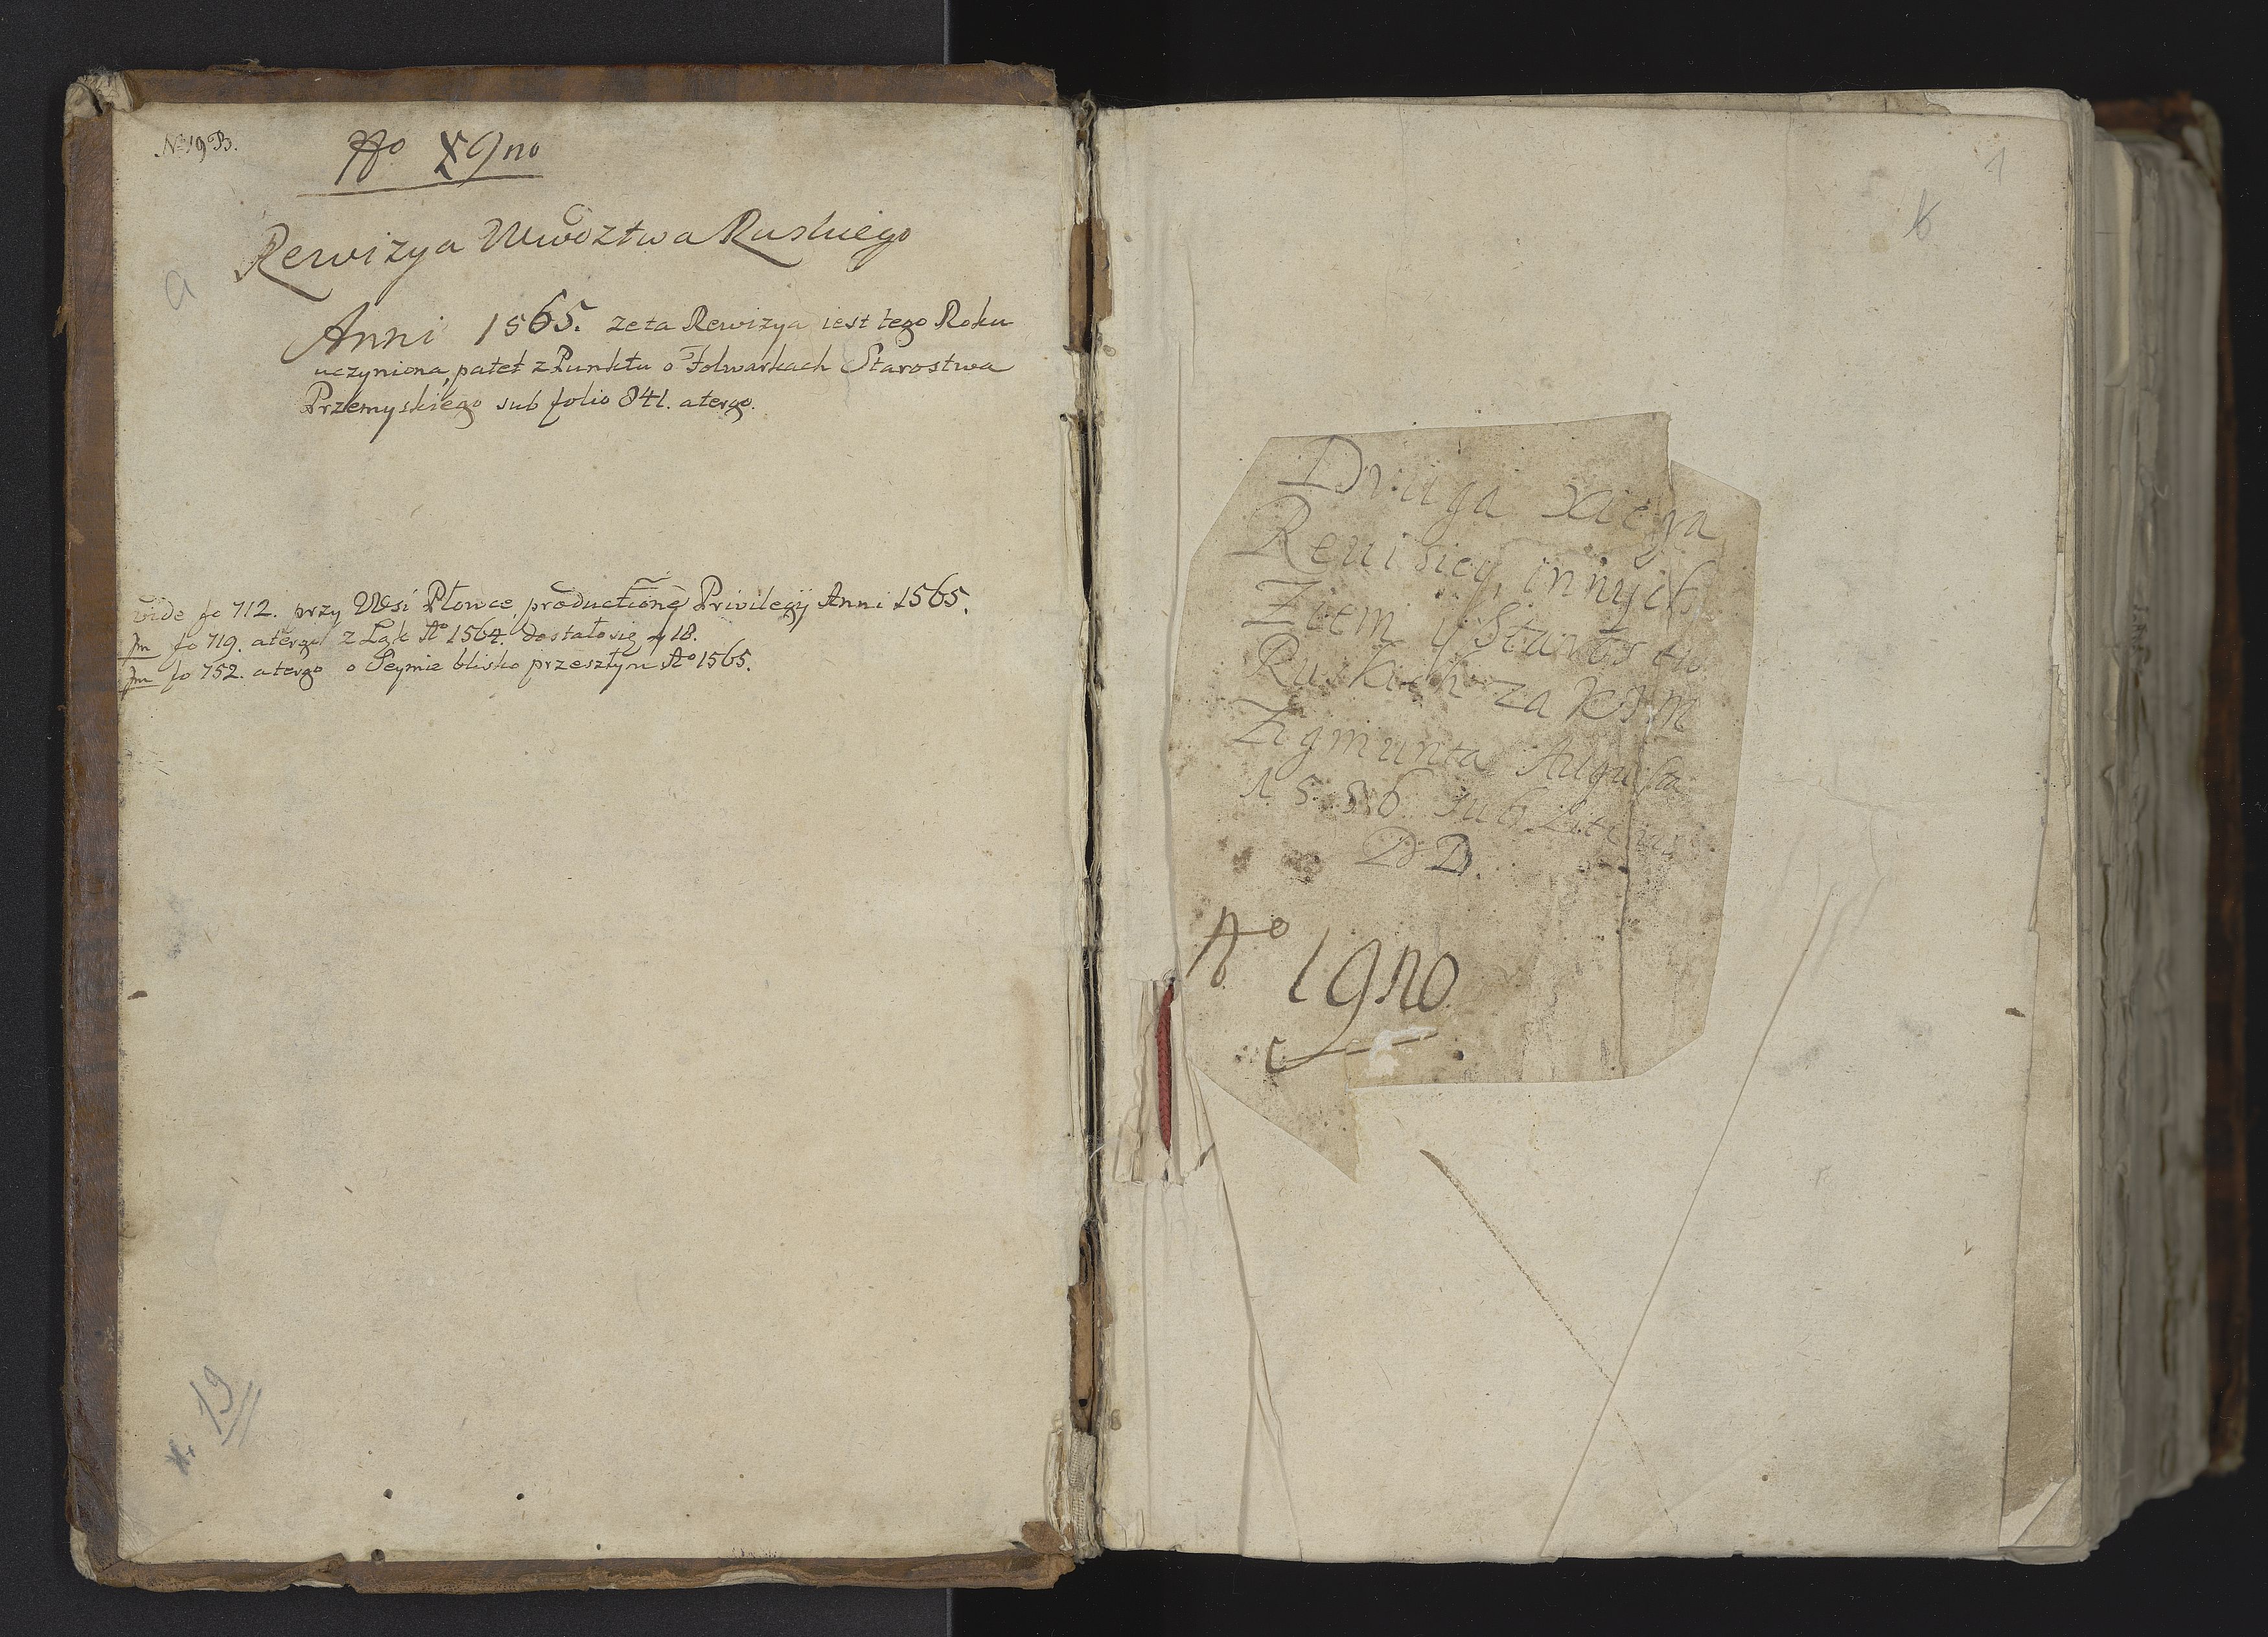 No 19 B.
No X9no
Rewizya Wwoztwa Ruskiego
a
Anni 1565. zeta Rewizya iest tego Roku
uczyniona, patet z Punktu o Folwarkach Starostwa
Przemyskiego sub folio 841. atergo.
vide fo 712. przy Wsi Płowce, productione Privilegij Anni 1565.
fo 719. atergo z Łąk Ao 1564. dostało się 18.
fo 752. atergo o Seymie blisko przeszłym Ao 1565.
19
1
b
Druga Xiega
Reuisiey innych
Ziem y Starostw
Ruskich za KJM
Zigmunta Augusta
sub Literis
DD.
No 19no